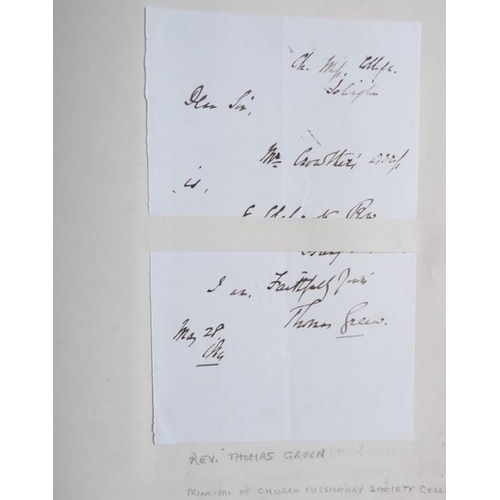 Ch. Miss. College.
Islington
Dear Sir,
Mr Crowther's
is,
I am, Faithfully Yours
Thomas Green.
May 28.
REV. THOMAS GREEN
PRINCIPAL OF CHURCH MISSIONARY SOCIETY COLL